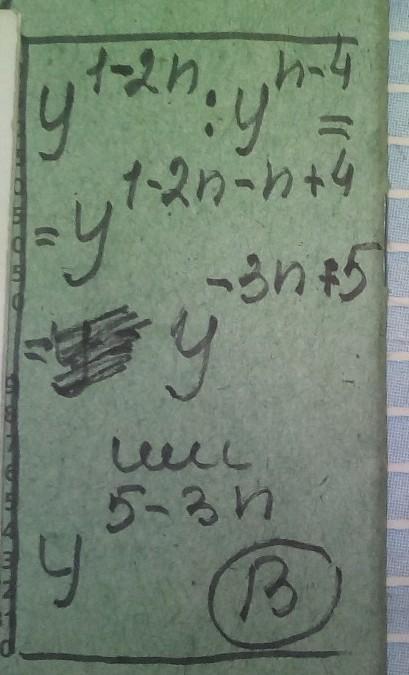 y^{1-2n} : y^{n-4} =
= y^{1-2n-n+4}
= y^{-3n+5}
или
y^{5-3n}
В